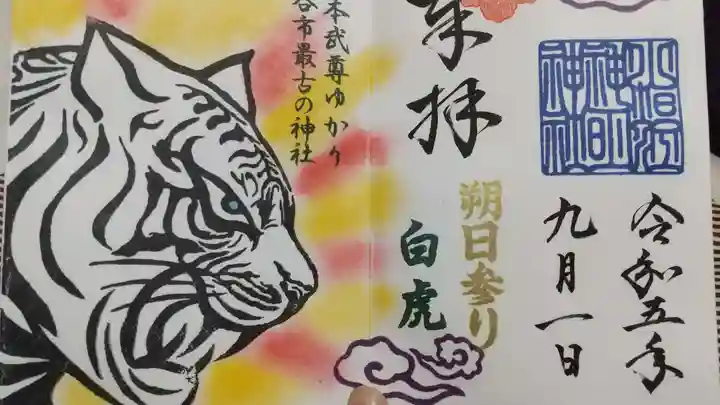 令和五年
九月一日
朔日参り
拝
白虎
本武尊ゆかり
谷市最古の神社